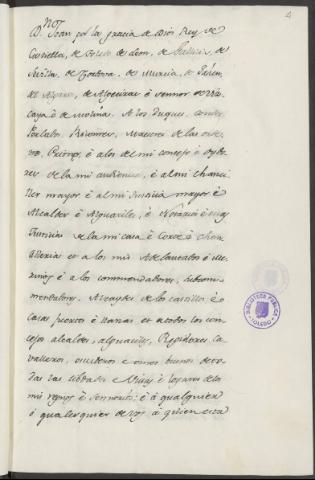 4
Dn Joan por la gracia de Dios Rey de
Castella, de Toledo de Leon, de Gallicia, de
Sevilla, de Cordova, de Murcia, de Jahen,
del Algarve, de Algecira è sennor de Viz
caya è de molina. A los Duques, condes
Perlados, Ricomes, Maestres de las orde
nes, Priores, è a los del mi consejo è oydo
res de la mi audiencia, è al mi chanci
ller mayor è al mi Justicia mayor è
Alcaldes è Alguaciles, è Notarios è otras
Justicias de la mi casa è Corte è chan
cilleria et a los mis Adelantados è me
rinos è a los commendadores, subcom
mendadores, Alcaydes de los castillos è
casas fuertes è llanas et a todos los con
cejos alcaldes, alguaciles, Regidores, Ca
valleros, escuderos è omes buenos de to
das las cibdades è Villas è logares de los
mis regnos è sennorios: è à qualquier
ò qualesquier de vos à quien esta
BIBLIOTECA PUBLICA
TOLEDO